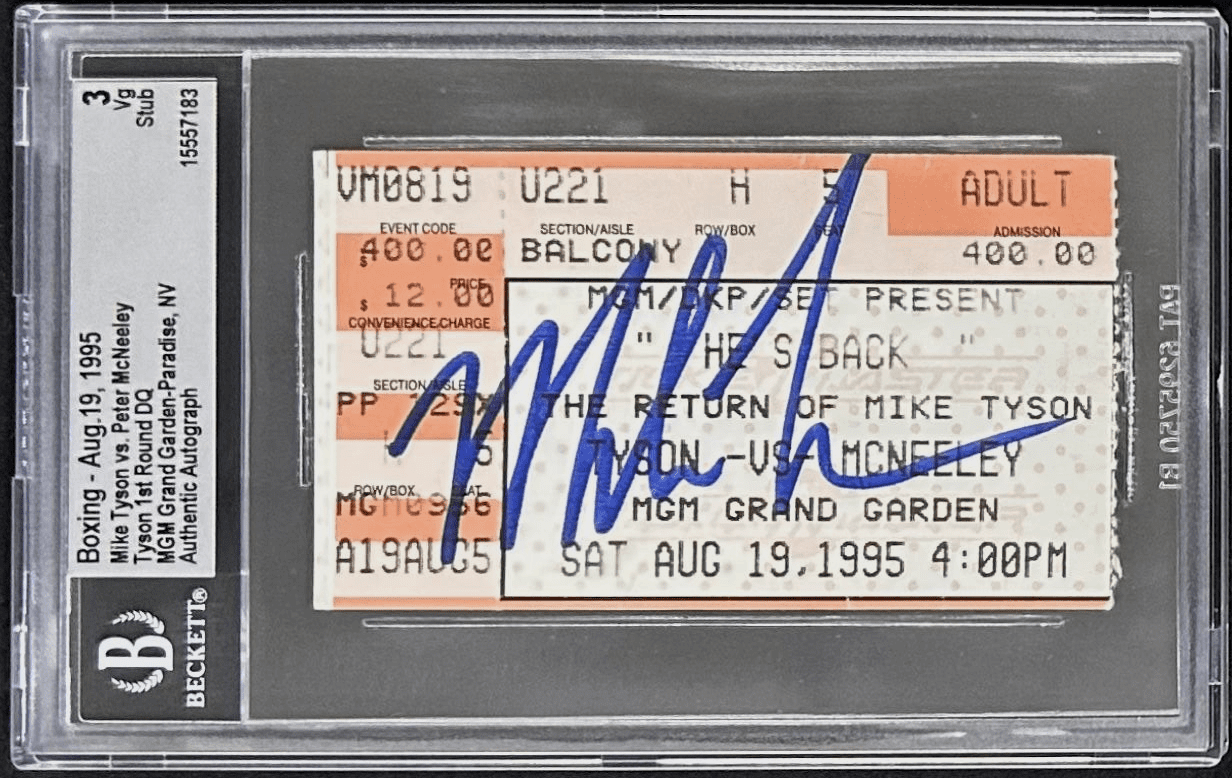 3
Vg
Stub
15557183
Boxing - Aug.19, 1995
Mike Tyson vs. Peter McNeeley
Tyson 1st Round DQ
MGM Grand Garden-Paradise, NV
Authentic Autograph
B
BECKETT®
VM0819 U221 H 5 ADULT
EVENT CODE SECTION/AISLE ROW/BOX SEAT ADMISSION
$ 400.00 BALCONY 400.00
PRICE
$ 12.00
CONVENIENCE CHARGE
MGM/DKP/SET PRESENT
U221
" HE S BACK "
SECTION/AISLE
PP 129X
THE RETURN OF MIKE TYSON
H 5
TYSON -VS- MCNEELEY
ROW/BOX SEAT
MGM GRAND GARDEN
A19AUG5
SAT AUG 19,1995 4:00PM